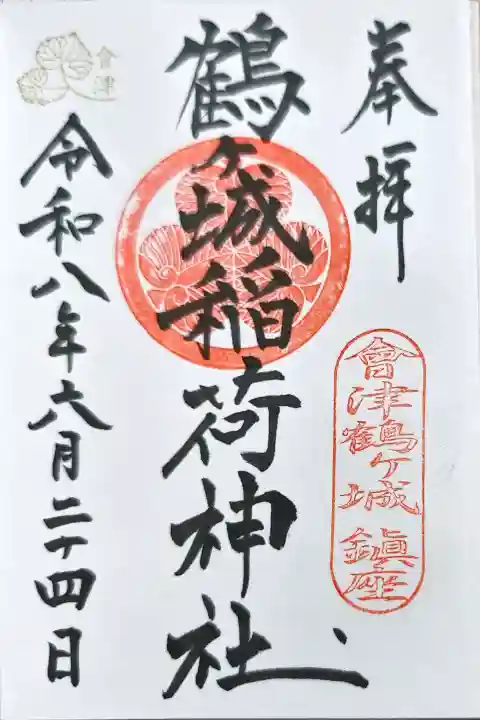 奉拝
會津鶴ヶ城鎮座
鶴ヶ城稲荷神社
令和八年六月二十四日
會津